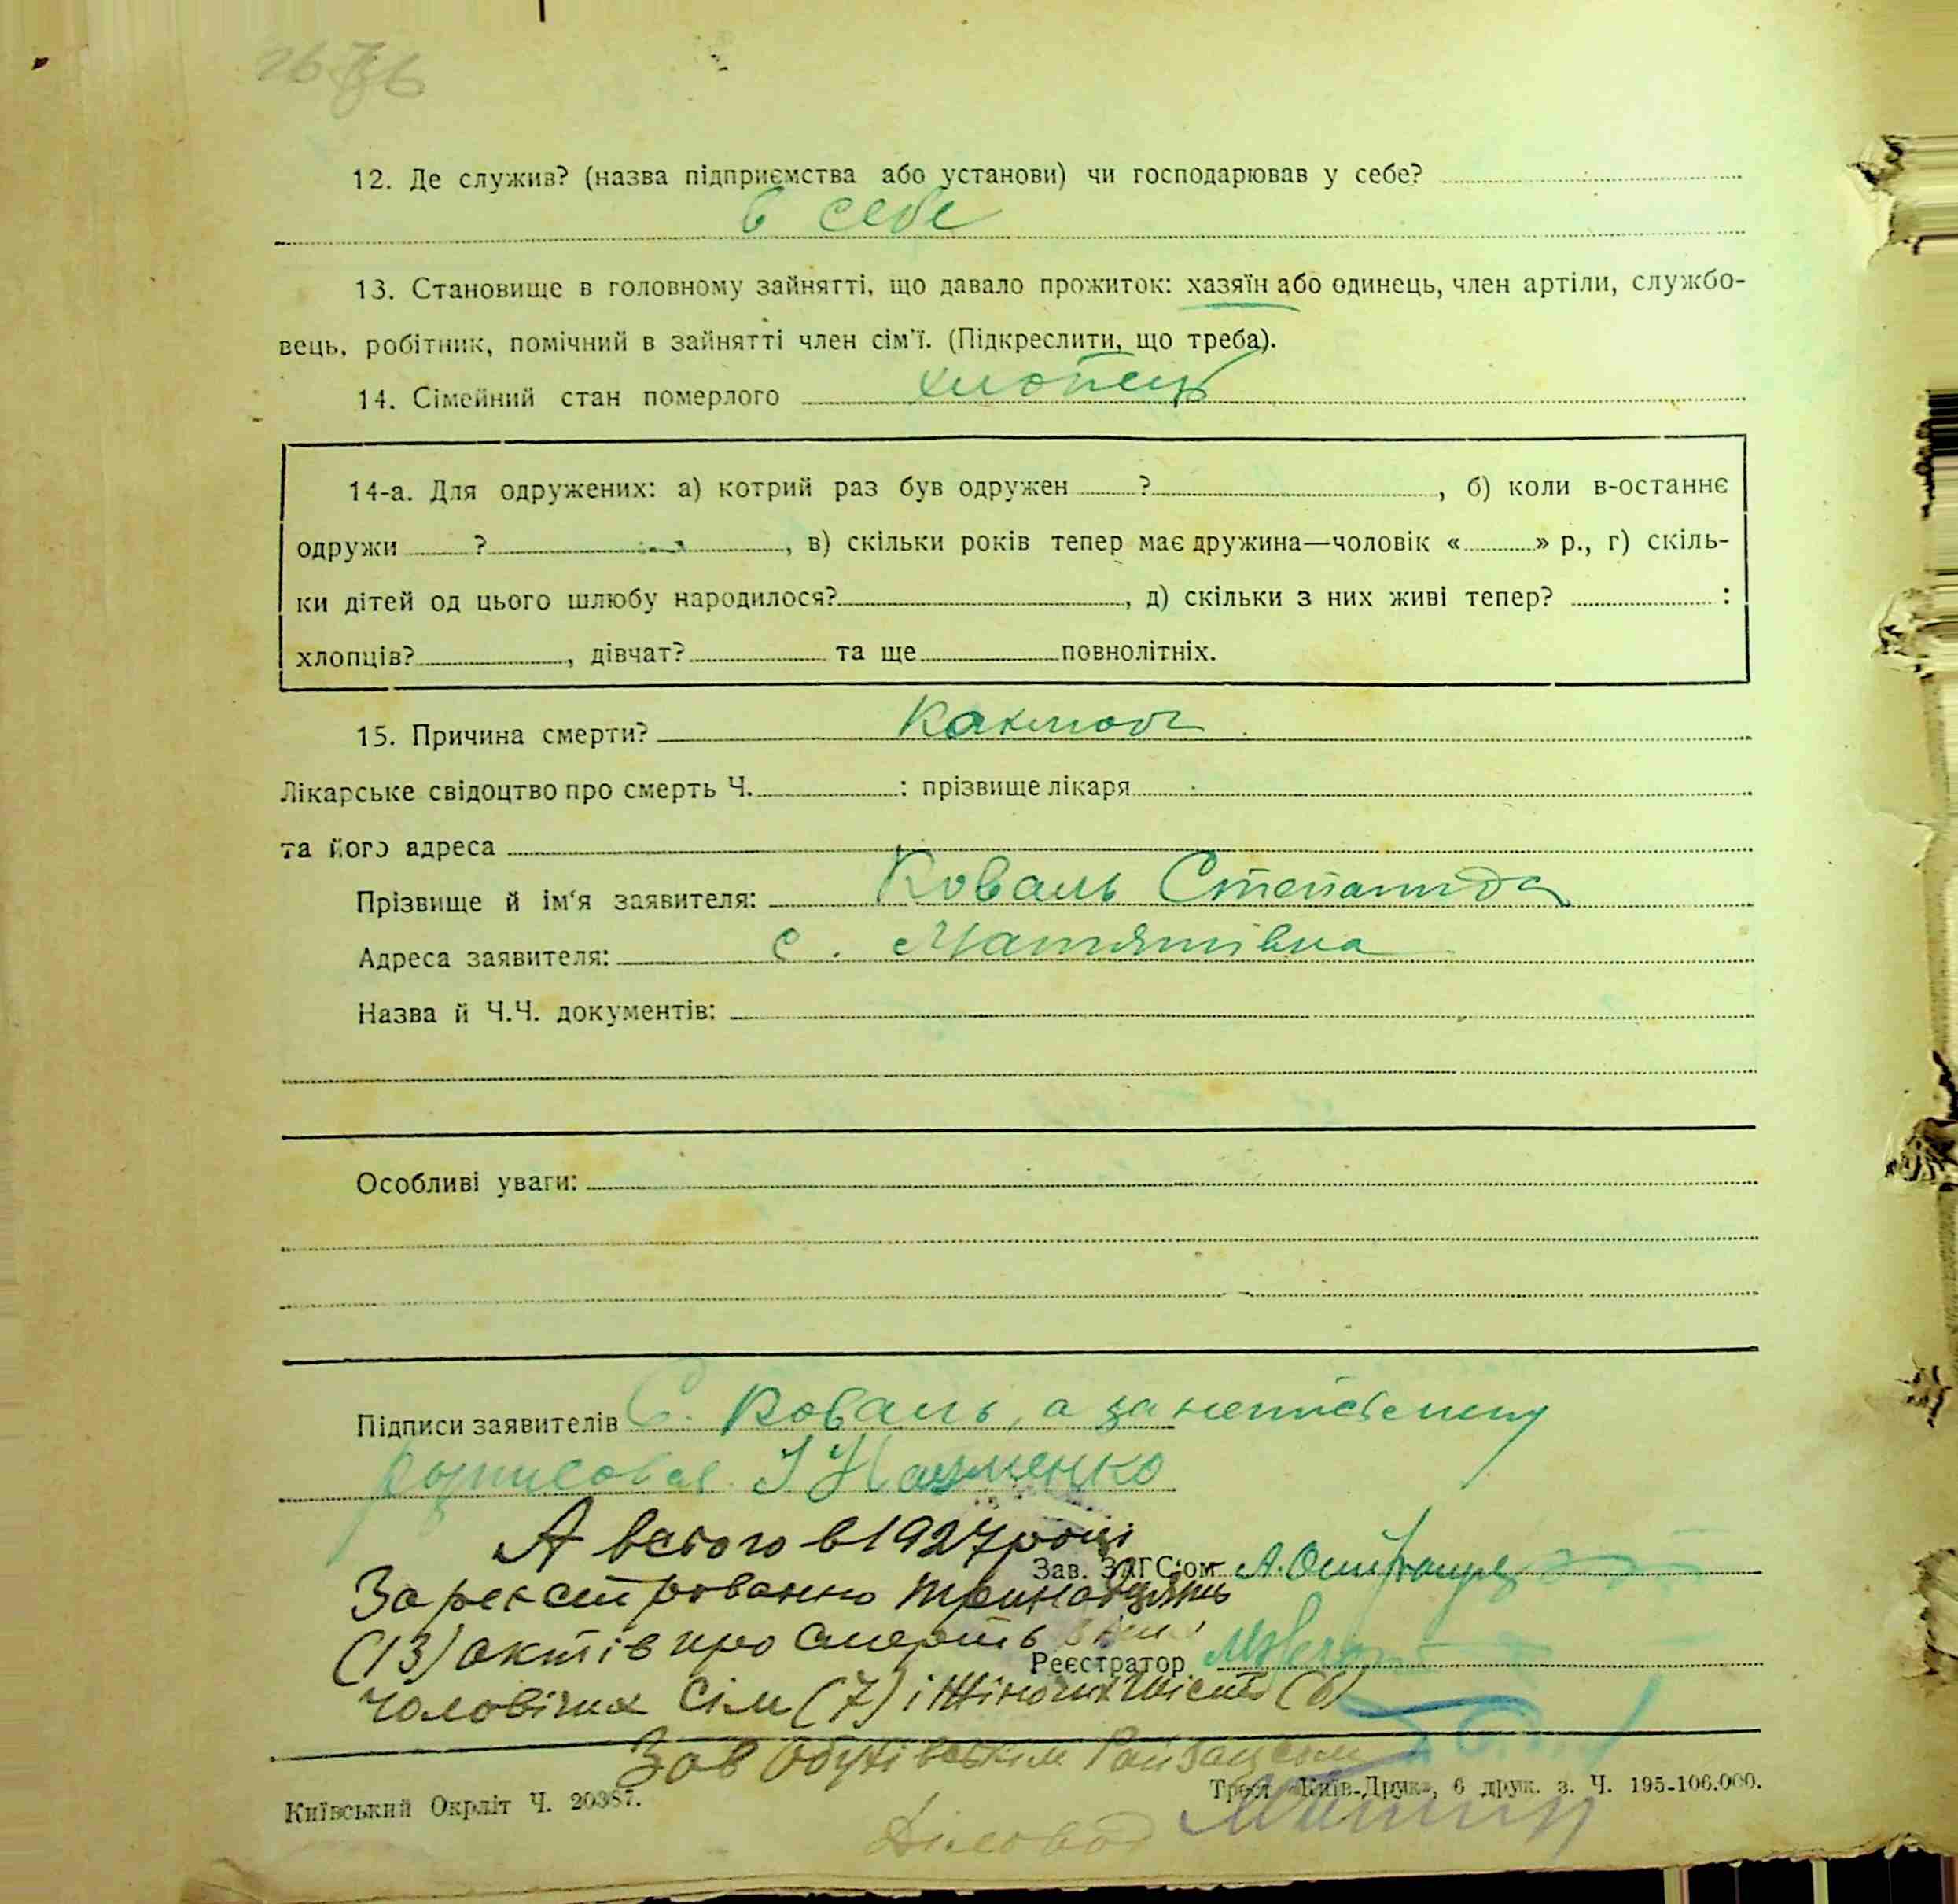 12. Де служив? (назва підприємства або установи) чи господарював у себе?
в себе
13. Становище в головному зайнятті, що давало прожиток: хазяїн або одинець, член артіли, службо-
вець, робітник, помічний в зайнятті член сім'ї. (Підкреслити, що треба).
14. Сімейний стан померлого хлопець
14-а. Для одружених: а) котрий раз був одружен ?, б) коли в-останнє
одружи ?, в) скільки років тепер має дружина—чоловік « » р., г) скіль-
ки дітей од цього шлюбу народилося?, д) скільки з них живі тепер? :
хлопців?, дівчат? та ще повнолітніх.
15. Причина смерти? Коклюш
Лікарське свідоцтво про смерть Ч. : прізвище лікаря
та його адреса
Прізвище й ім'я заявителя: Коваль Степанида
Адреса заявителя: с. Матяшівка
Назва й Ч.Ч. документів:
Особливі уваги:
Підписи заявителів С. Коваль, а за неписьменну
розписався І
А всього в 1927 році
Зав. ЗАГС'ом А.
Зареєстрованно тринадцять
(13) актів про смерть з них
Реєстратор
чоловічих сім (7) і жіночих шість (6)
Зав Обухівським
Київський Окрліт Ч. 20387.
Трест «Київ-Друк», 6 друк. з. Ч. 195-106.000.
Діловод